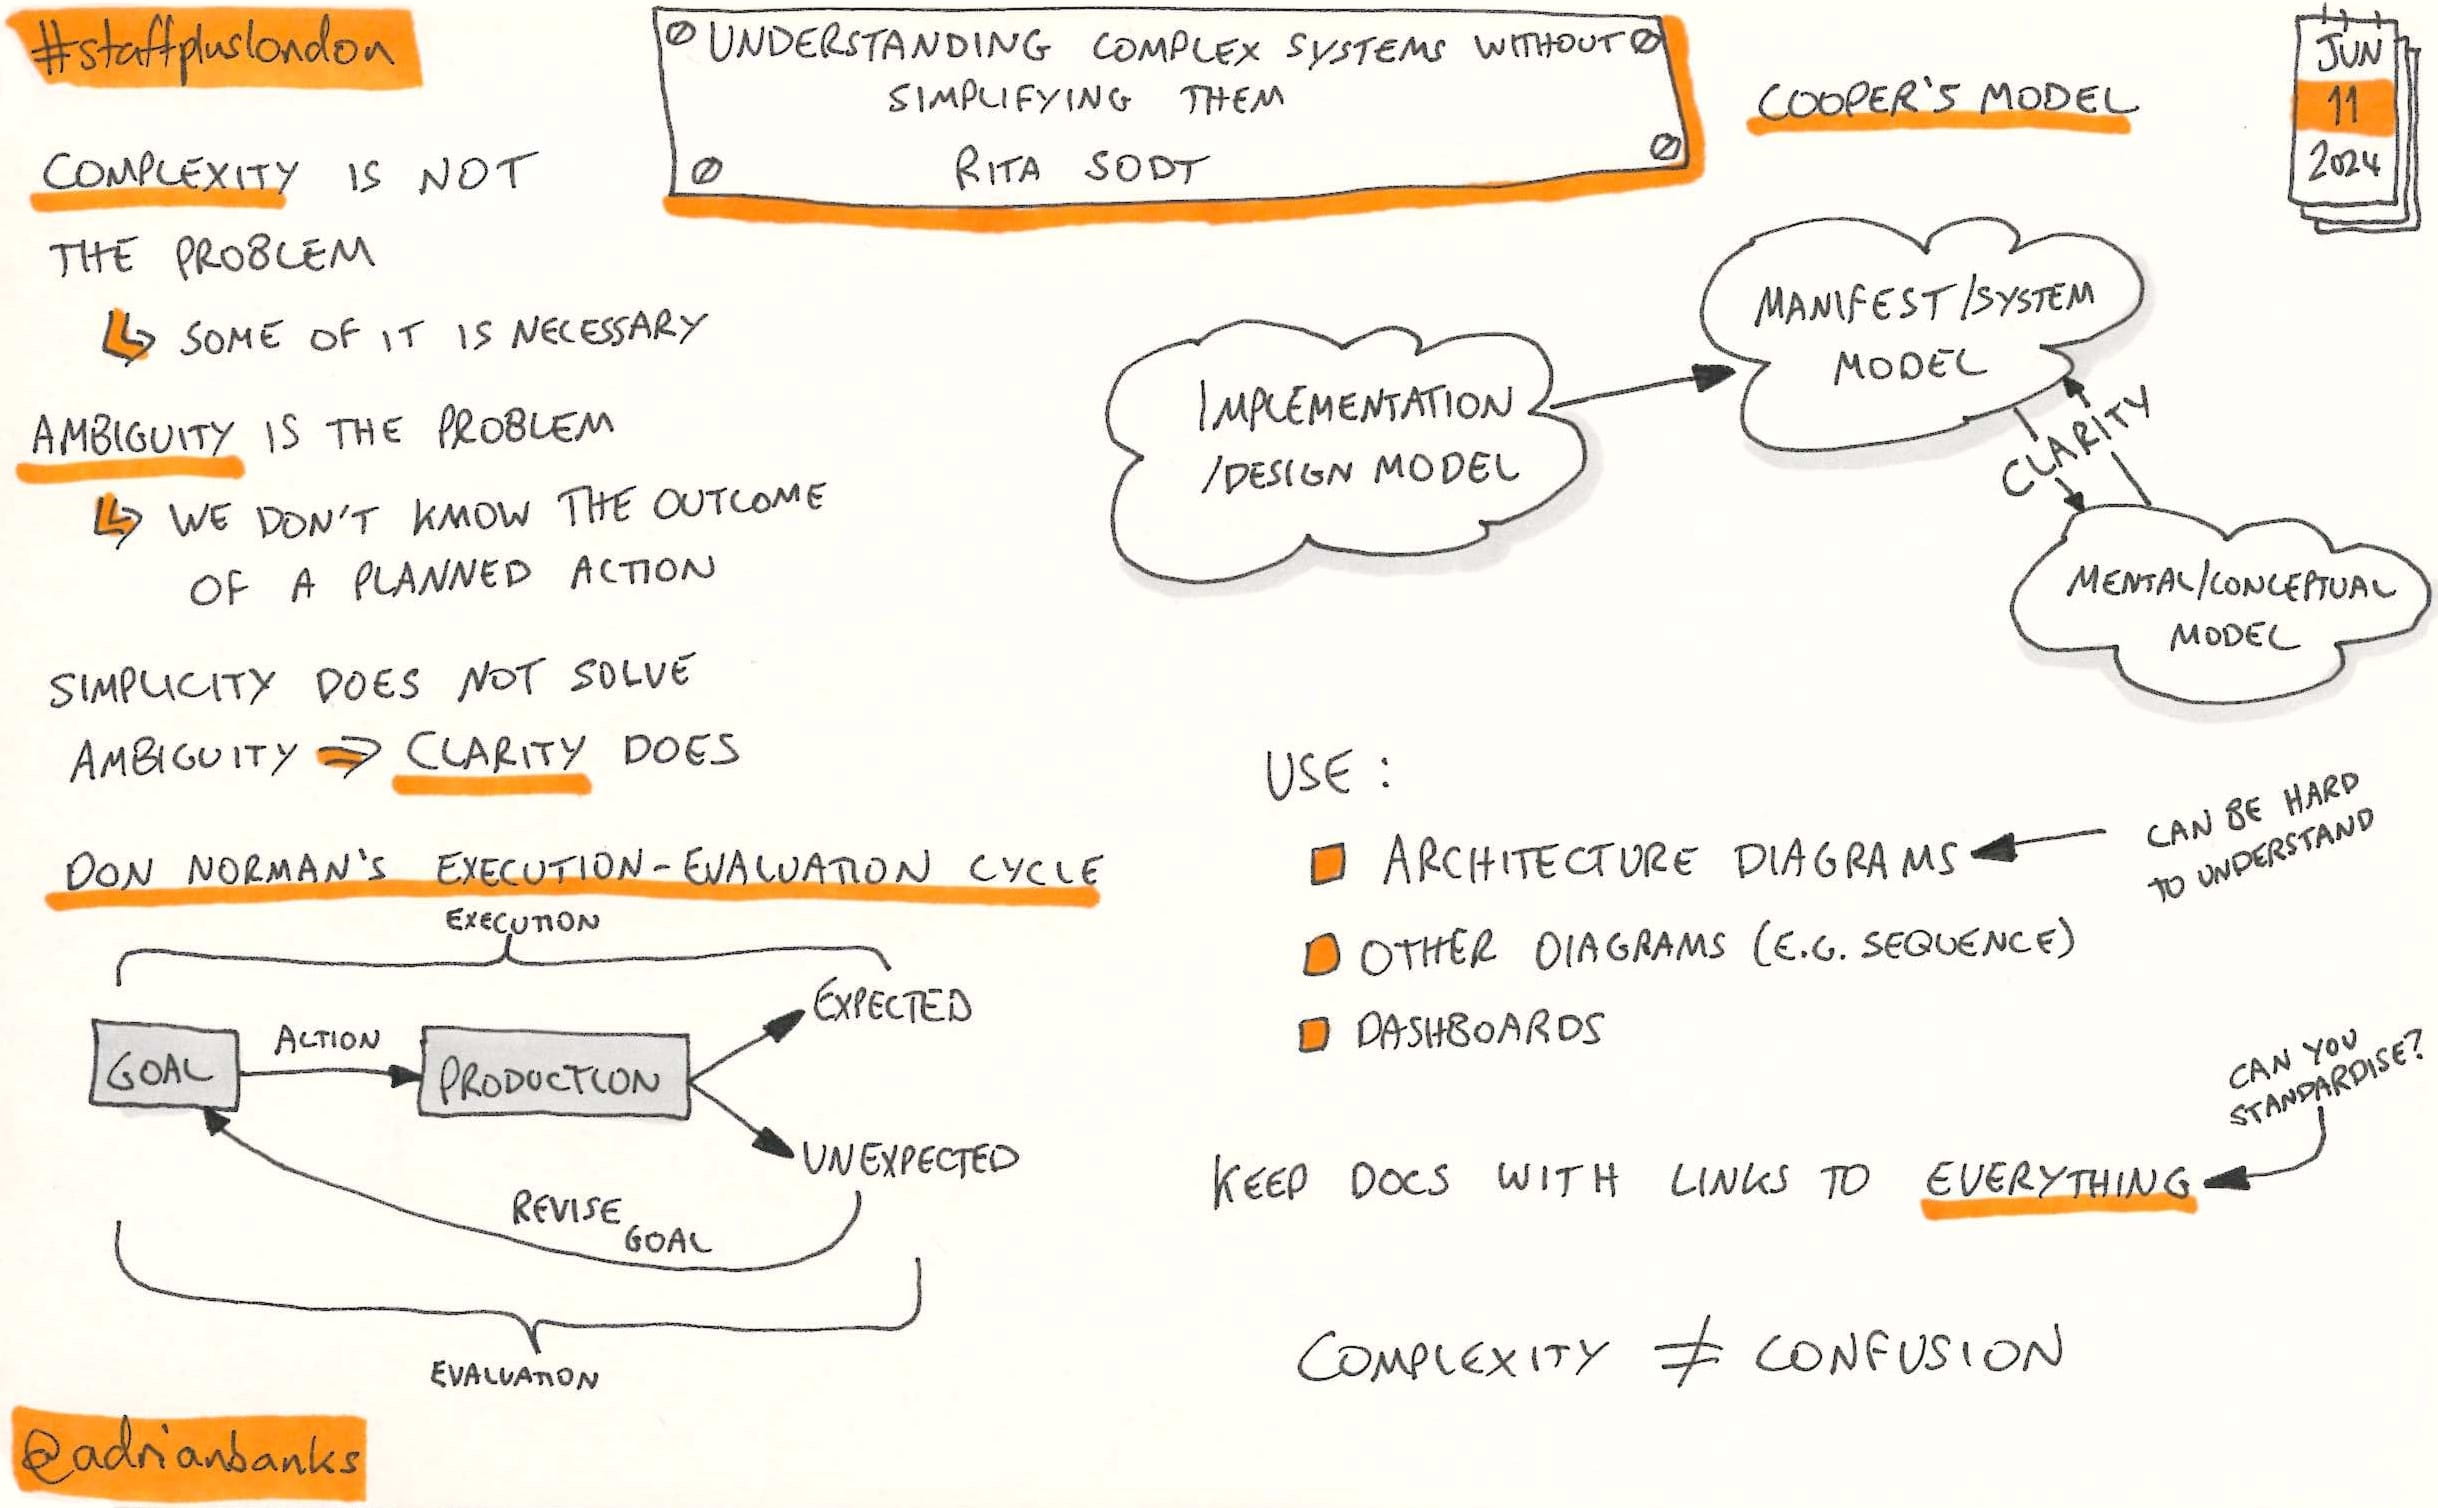 #staffpluslondon
UNDERSTANDING COMPLEX SYSTEMS WITHOUT
SIMPLIFYING THEM
RITA SODT
JUN
11
2024
COMPLEXITY IS NOT
THE PROBLEM
SOME OF IT IS NECESSARY
AMBIGUITY IS THE PROBLEM
WE DON'T KNOW THE OUTCOME
OF A PLANNED ACTION
SIMPLICITY DOES NOT SOLVE
AMBIGUITY ⇒ CLARITY DOES
DON NORMAN'S EXECUTION-EVALUATION CYCLE
EXECUTION
GOAL
ACTION
PRODUCTION
EXPECTED
UNEXPECTED
REVISE
GOAL
EVALUATION
@adrianbanks
COOPER'S MODEL
IMPLEMENTATION
/DESIGN MODEL
MANIFEST/SYSTEM
MODEL
CLARITY
MENTAL/CONCEPTUAL
MODEL
USE:
ARCHITECTURE DIAGRAMS
CAN BE HARD
TO UNDERSTAND
OTHER DIAGRAMS (E.G. SEQUENCE)
DASHBOARDS
CAN YOU
STANDARDISE?
KEEP DOCS WITH LINKS TO EVERYTHING
COMPLEXITY ≠ CONFUSION